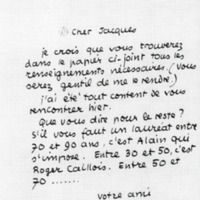 Cher Jacques
je crois que vous trouverez
dans le papier ci-joint tous les
renseignements nécessaires. (vous
serez gentil de me le rendre)
j'ai été tout content de vous
rencontrer hier.
Que vous dire pour le reste ?
S'il vous faut un lauréat entre
70 et 90 ans, c'est Alain qui
s'impose. Entre 30 et 50, c'est
Roger Caillois. Entre 50 et
70 .......
votre ami